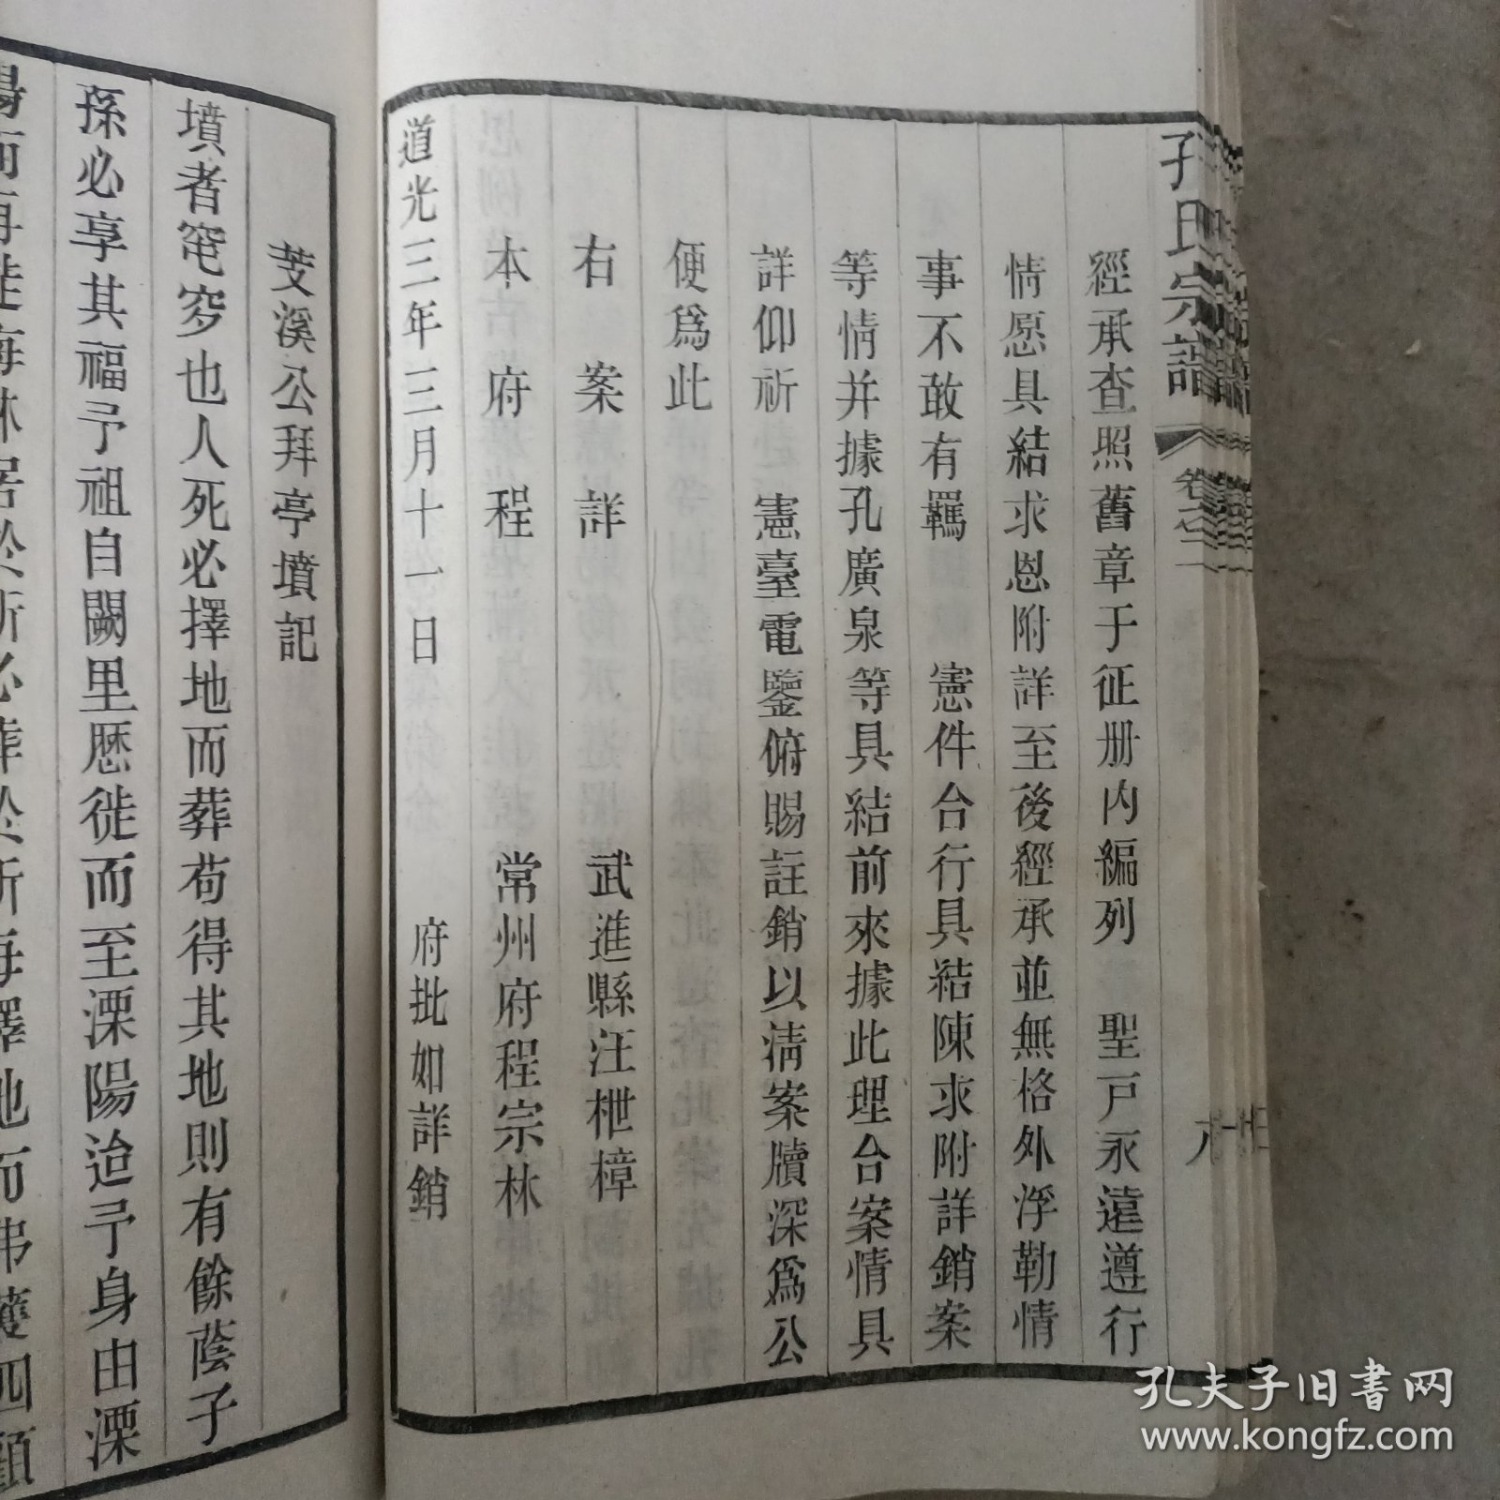 孔氏宗譜
卷之二
經承查照舊章于征册内編列　聖戸永遠遵行
情愿具結求恩附詳至後經承並無格外浮勒情
事不敢有羈　憲件台行具結陳求附詳銷案
等情并據孔廣泉等具結前來據此理台案情具
詳仰祈　憲臺電鑒俯賜註銷以淸案牘深爲公
便爲此
右案詳　武進縣汪枻樟
本府程　常州府程宗林
道光三年三月十一日　府批如詳銷
芠溪公拜亭墳記
墳者窀穸也人死必擇地而葬苟得其地則有餘蔭子
孫必享其福予祖自闕里歷徙而至溧陽迨予身由溧
陽而再徙每休居於所必葬於所每擇地而弗獲四顧
孔夫子旧書网
www.kongfz.com